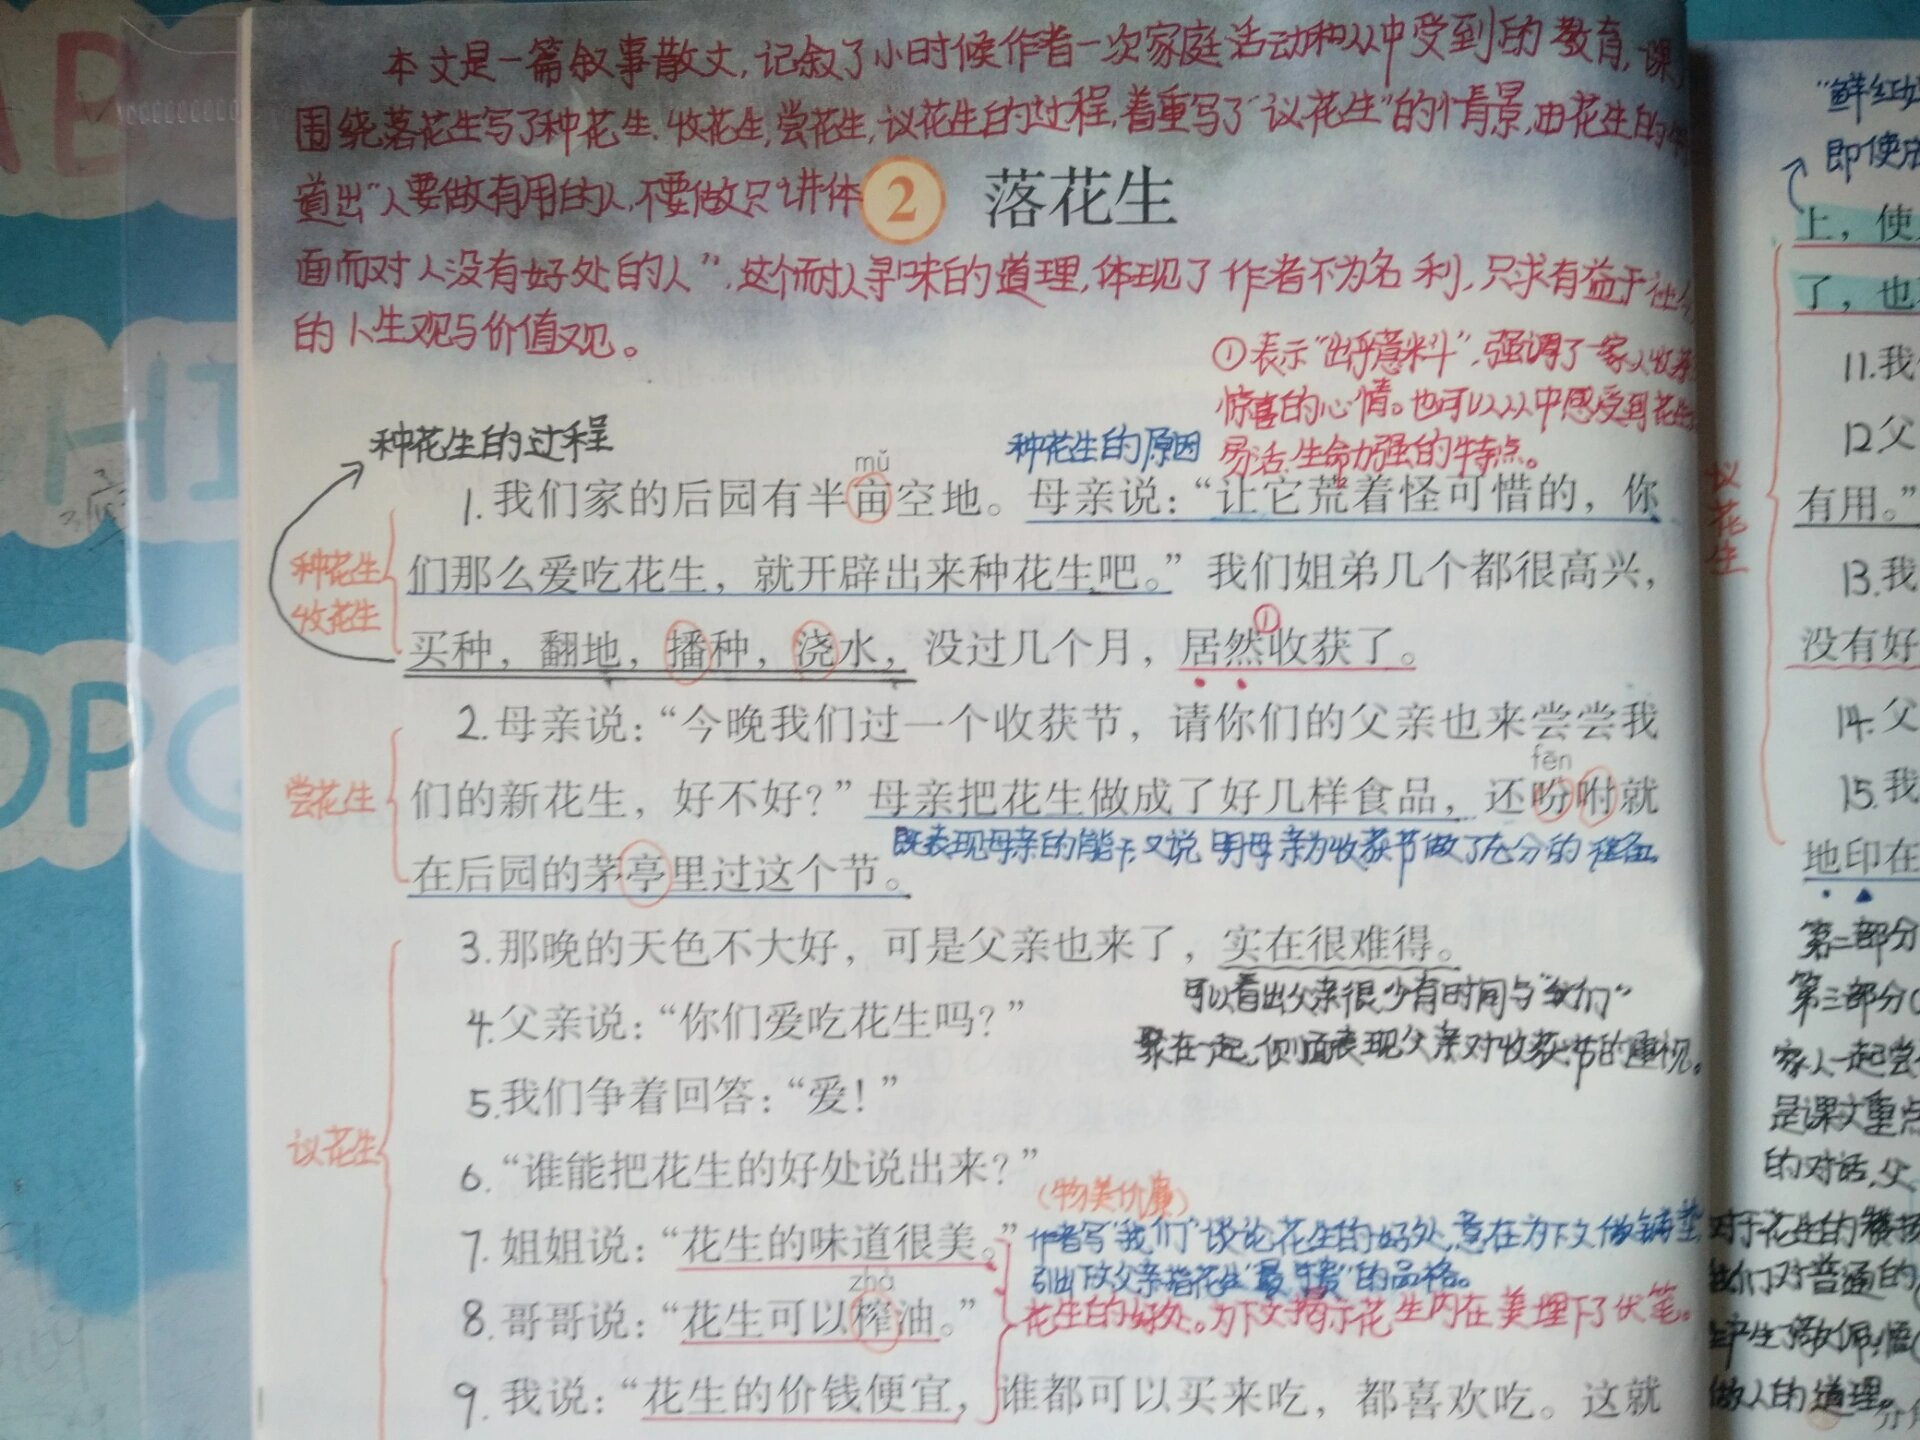 本文是一篇叙事散文,记叙了小时候作者一次家庭活动和从中受到的教育,课
围绕落花生写了种花生.收花生,尝花生,议花生的过程,着重写了“议花生”的情景,由花生的
道出“人要做有用的人,不要做只讲体
2 落花生
面而对人没有好处的人”,这个耐人寻味的道理,体现了作者不为名利,只求有益于社
的人生观与价值观。
①表示“出乎意料”,强调了一家人收获
惊喜的心情。也可以从中感受到花生
易活、生命力强的特点。
种花生的过程
种花生的原因
mǔ
1.我们家的后园有半亩空地。母亲说：“让它荒着怪可惜的，你
们那么爱吃花生，就开辟出来种花生吧。”我们姐弟几个都很高兴，
种花生
收花生
①
买种，翻地，播种，浇水，没过几个月，居然收获了。
2.母亲说：“今晚我们过一个收获节，请你们的父亲也来尝尝我
fēn
尝花生
们的新花生，好不好？”母亲把花生做成了好几样食品，还吩咐就
既表现母亲的能干又说明母亲为收获节做了充分的准备
在后园的茅亭里过这个节。
3.那晚的天色不大好，可是父亲也来了，实在很难得。
可以看出父亲很少有时间与“我们”
4.父亲说：“你们爱吃花生吗？”
聚在一起,侧面表现父亲对收获节的重视。
5.我们争着回答：“爱！”
议花生
6.“谁能把花生的好处说出来？”
(物美价廉)
7.姐姐说：“花生的味道很美。”
作者写“我们”谈论花生的好处,意在为下文做铺垫
引出下文父亲指花生“最可贵”的品格。
zhà
8.哥哥说：“花生可以榨油。”
花生的好处。为下文揭示花生内在美埋下了伏笔。
9.我说：“花生的价钱便宜，谁都可以买来吃，都喜欢吃。这就
“鲜红
即使
上，使
了，也
11.我
12父
议花生
有用。”
13.我
没有好
14.父
15.我
地印在
第二部分
第三部分
家人一起尝
是课文重点
的对话,父
对于花生的
我们对普通的
做人的道理。
AB
HI
OPQ